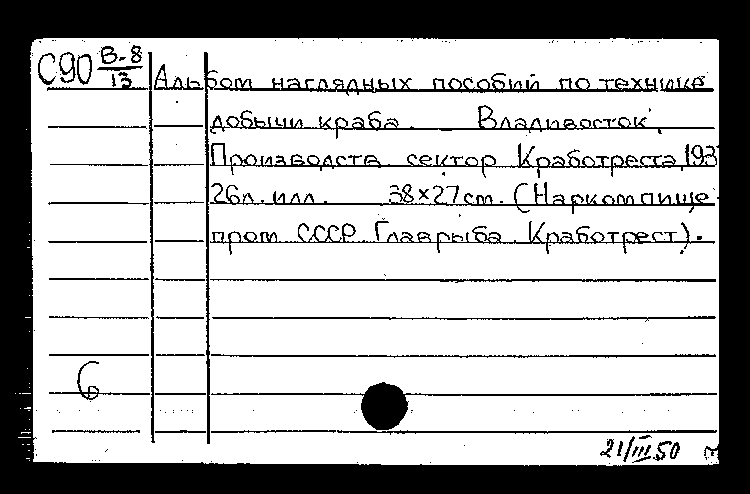 С90 В-8/13
Альбом наглядных пособий по технике
добычи краба. Владивосток,
Производств. сектор Кработреста, 193
26л. илл. 38×27см. (Наркомпище-
пром СССР. Главрыба. Кработрест).
6
21/III 50